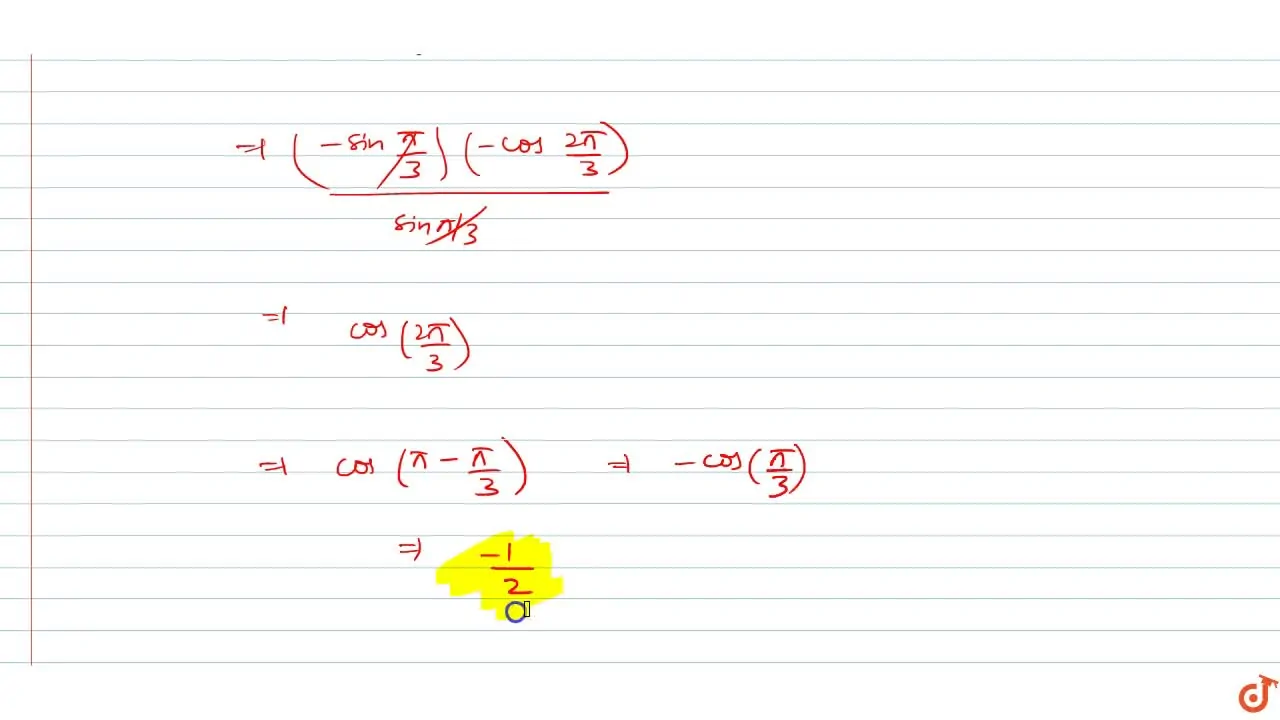 ⇒ (-sin π/3) (-cos 2π/3)
sin π/3
⇒ cos (2π/3)
⇒ cos (π - π/3) ⇒ -cos (π/3)
⇒ -1/2